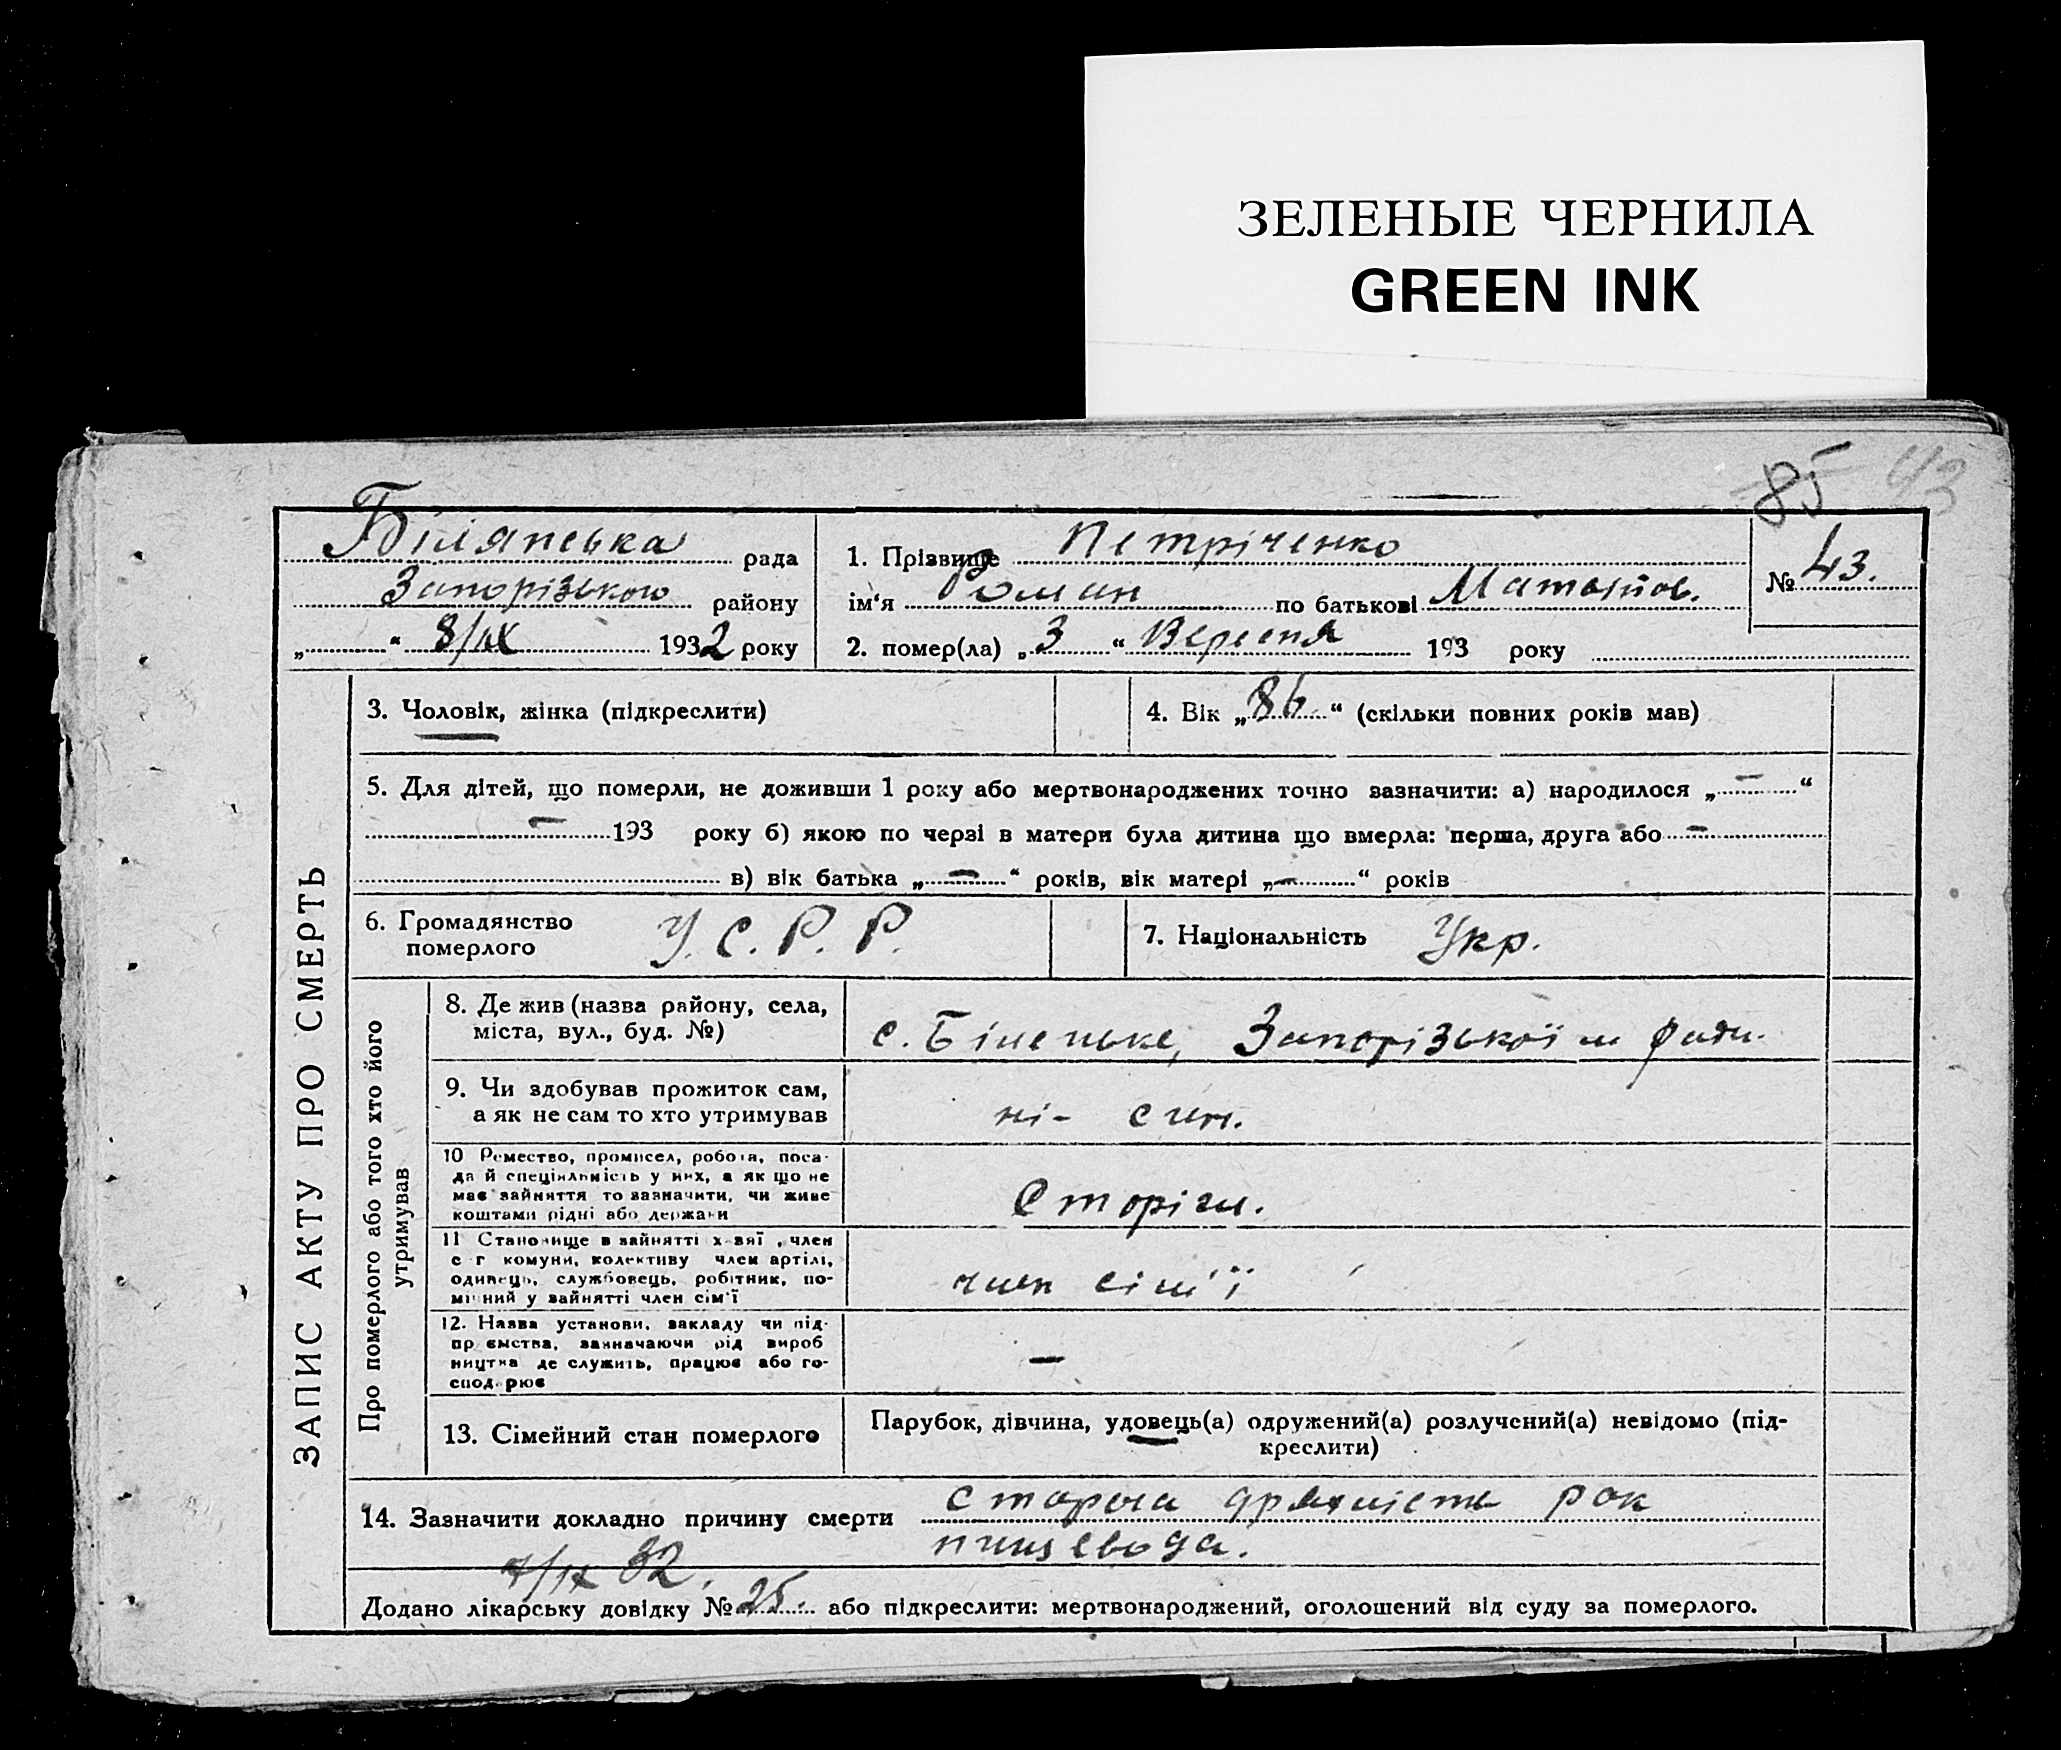 ЗЕЛЕНЫЕ ЧЕРНИЛА
GREEN INK
85 43
рада
Запорізького району
„ “ 8/IX 1932 року
1. Прізвище Петріченко
ім‘я Роман по батькові
2. помер(ла) „ 3 “ Вересня 193 року
№ 43.
ЗАПИС АКТУ ПРО СМЕРТЬ
3. Чоловік, жінка (підкреслити)
4. Вік „ 86 “ (скільки повних років мав)
5. Для дітей, що померли, не доживши 1 року або мертвонароджених точно зазначити: а) народилося „ — “
— 193 року б) якою по черзі в матери була дитина що вмерла: перша, друга або —
в) вік батька „ — “ років, вік матері „ — “ років
6. Громадянство
померлого У. С. Р. Р.
7. Національність Укр.
Про померлого або того хто його
утримував
8. Де жив (назва району, села,
міста, вул., буд. №)
с. Біленьке, Запорізької м ради.
9. Чи здобував прожиток сам,
а як не сам то хто утримував
ні - син.
10 Ремество, промисел, робота, поса-
да й спеціяльність у них, а як що не
має зайняття то зазначити, чи живе
коштами рідні або держави
11 Становище в зайнятті х-зяї , член
с г комуни, колективу член артілі,
одинець, службовець, робітник, по-
мічний у зайнятті член сім‘ї
член сім'ї
12. Назва установи, закладу чи під-
приємства, зазначаючи рід вироб
ництва де служить, працює або го-
сподарює
—
13. Сімейний стан померлого
Парубок, дівчина, удовець(а) одружений(а) розлучений(а) невідомо (під-
креслити)
14. Зазначити докладно причину смерти стареча дряхність рок
пищевода.
7/IX 32.
Додано лікарську довідку № 25. або підкреслити: мертвонароджений, оголошений від суду за померлого.